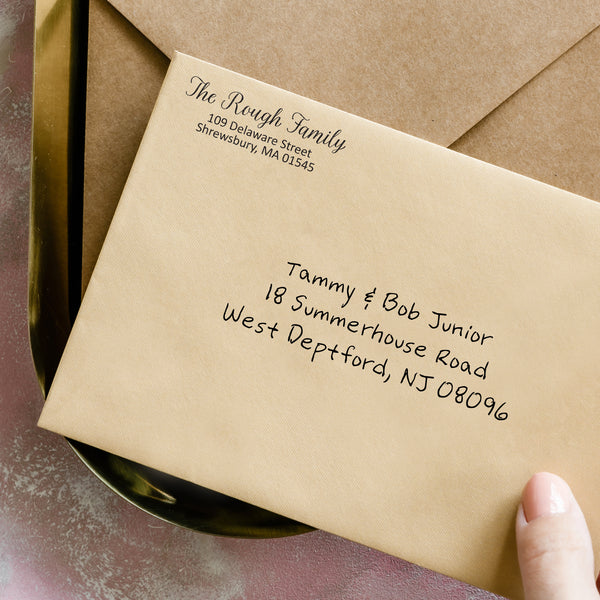 The Rough Family
109 Delaware Street
Shrewsbury, MA 01545
Tammy & Bob Junior
18 Summerhouse Road
West Deptford, NJ 08096